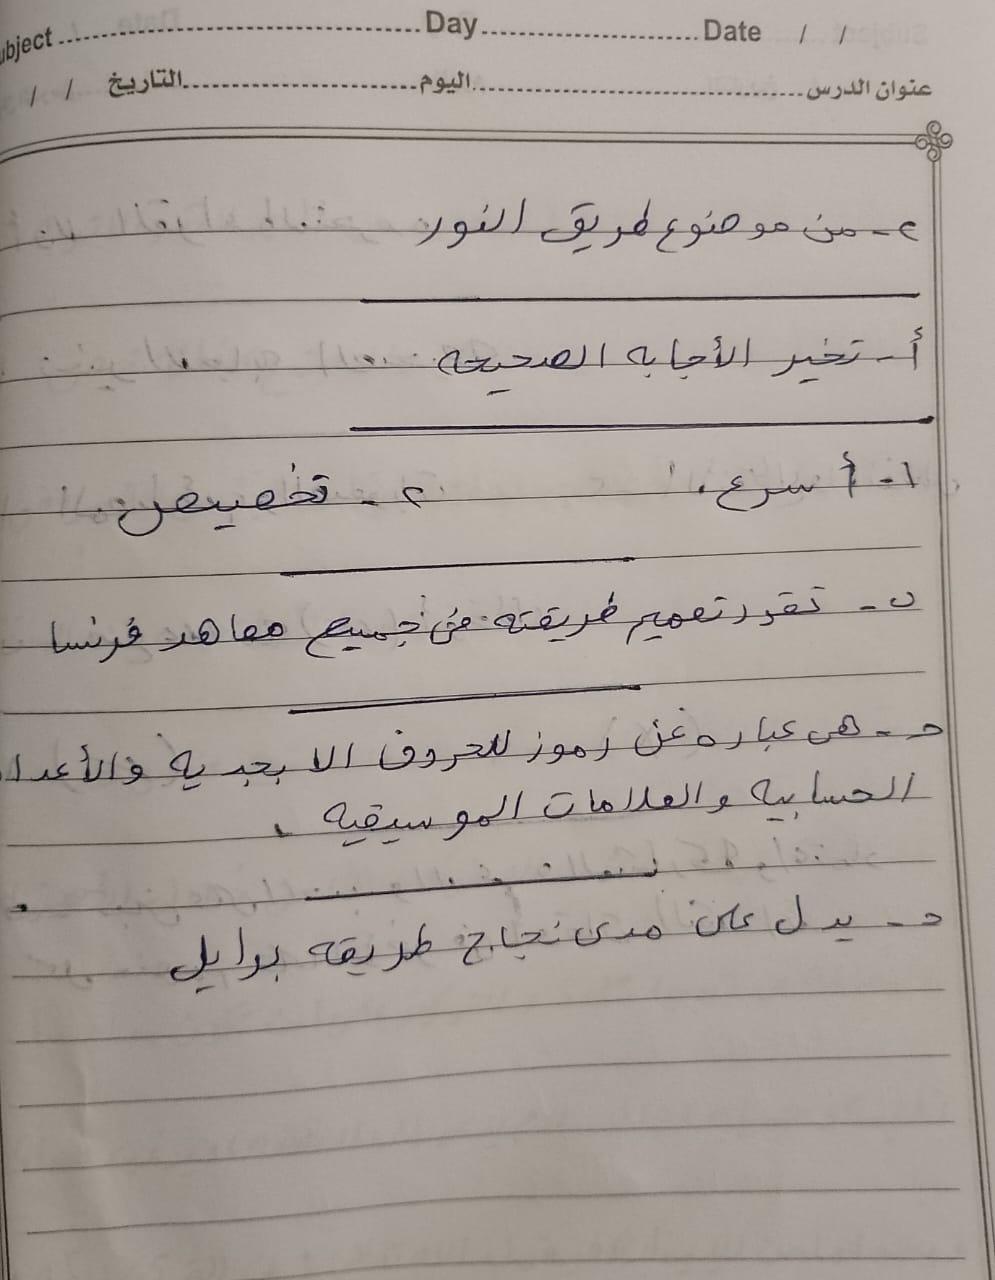 ubject ........ Day ........ Date / /
عنوان الدرس ........ اليوم ........ التاريخ / /
٢- من موضوع طريق النور
أ- تخير الأجابه الصحيحه
١- أسرع. ٢- تخصيص.
ں- تقرر تعميم طريقته في جميع معاهد فرنسا
حـ- هى عباره عن رموز للحروف الابجديه والأعدا
الحسابيه والعلامات الموسيقيه.
د- يدل على مدى نجاح طريقه برايل